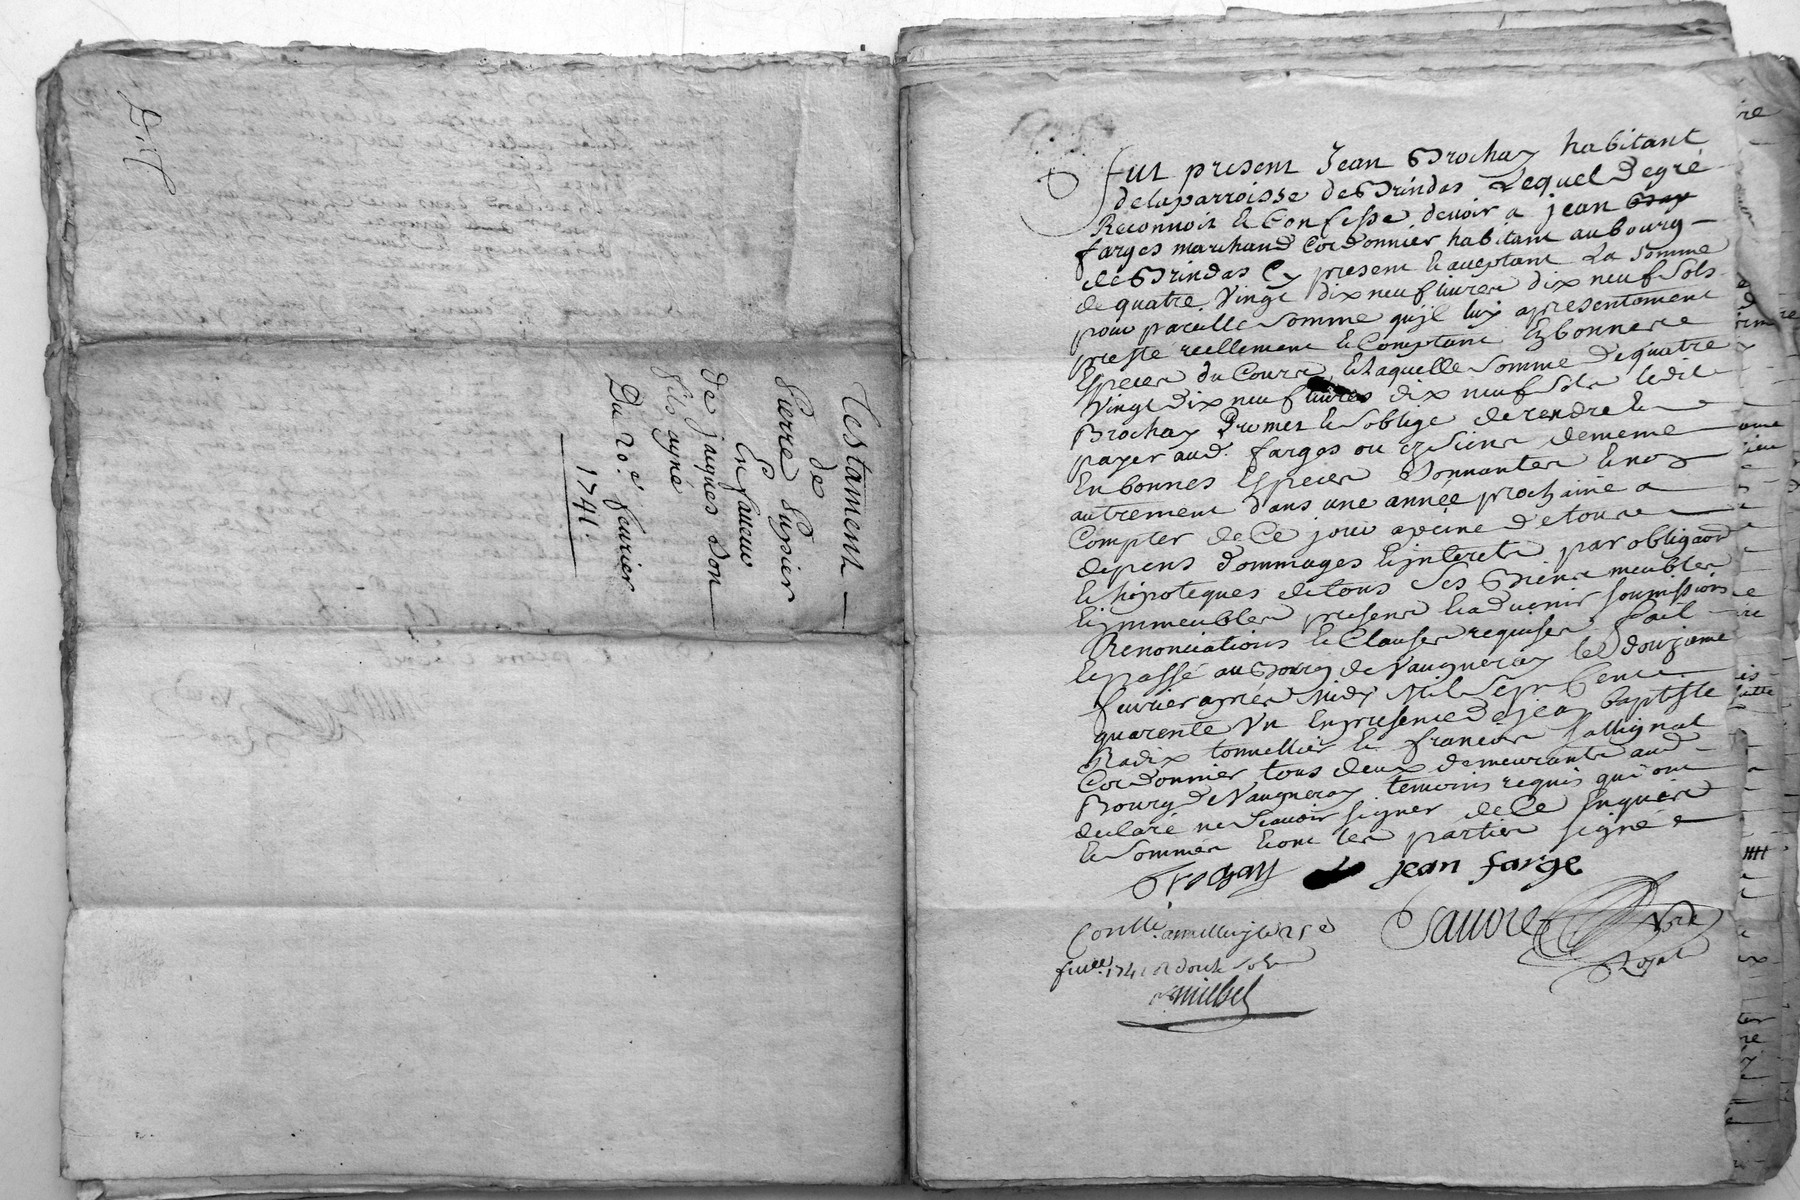 Testament
de
Pierre
En faveur
de jaques son
fils ayné
Du 20e. fevrier
1741.
fut present Jean Brochay habitant
de la parroisse de Brindas Lequel de gré
Reconnoit et Confesse devoir a jean
farges marchand Cordonnier habitant au bourg
de Brindas Cy present et aceptant La somme
de quatre Vingt dix neuf livres dix neuf sols
pour pareille somme qu'jl luy a presentement
preste reellement et Comptant En bonnes
Especes du Cours, Et laquelle somme de quatre
Vingt dix neuf livres dix neuf sols ledit
Brochay Promet et s'oblige de rendre et
payer aud. farges ou es siens de meme
En bonnes Especes Sonnantes et non
autrement dans une année prochaine a
Compter de Ce jour a peine de tous
depens dommages et interets par obligaon
et hipoteques de tous ses Biens meubles
et immeubles presens et advenir soumissions
Renonciations et Clauses requises fait
et passé au Bourg de Vaugneray le douzieme
fevrier après Midy Mil Sept Cent
quarente Un En presence de jean baptiste
Radix tonnellier et francois
Cordonnier tous deux demeurants aud.
Bourg de Vaugneray temoins requis qui ont
declaré ne Scavoir signer de Ce Enquis
et Sommés et ont les parties signé
Brochay jean farge
Contlé a le
fevrer. 1741 R douze sols
Sauore Nore
Royal